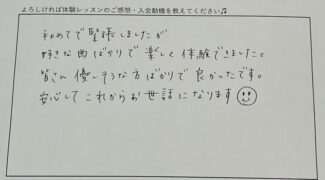 よろしければ体験レッスンのご感想・入会動機を教えてください♫
初めてで緊張しましたが
好きな曲ばかりで楽しく体験できました。
皆さん優しそうな方ばかりで良かったです。
安心してこれからお世話になります